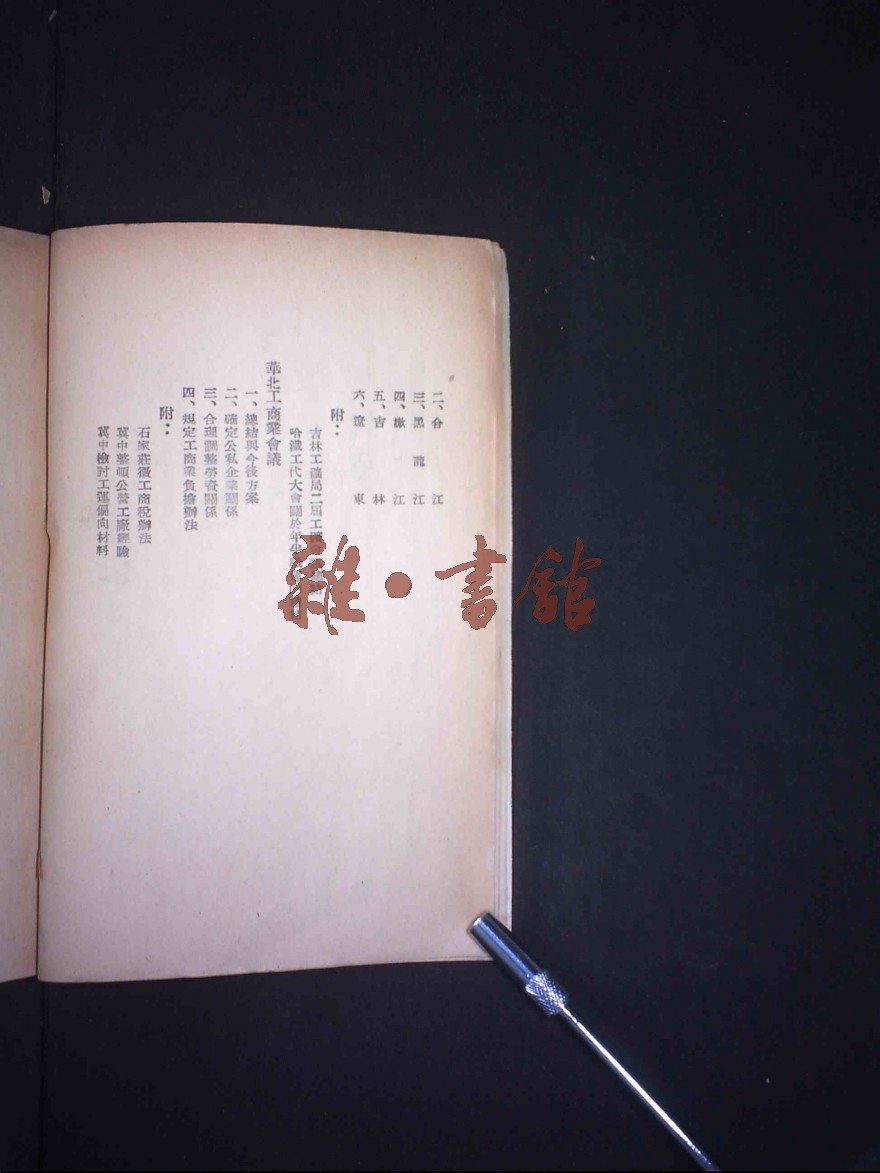 二、合江
三、黑龍江
四、嫩江
五、吉林
六、遼東
附：
吉林工礦局二届工
哈鐵工代大會關於年
華北工商業會議
一、總結與今後方案
二、確定公私企業關係
三、合理調整勞資關係
四、規定工商業負擔辦法
附：
石家莊徵工商税辦法
冀中整頓公營工廠經驗
冀中檢討工運偏向材料
雜·書館